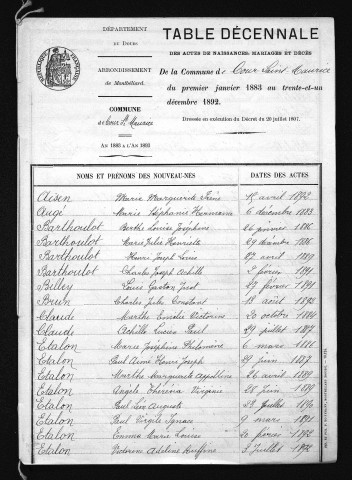 DÉPARTEMENT
DU DOUBS
ARRONDISSEMENT
de Montbéliard.
COMMUNE
de Cour St Maurice
AN 1883 A L'AN 1893
RÉPUBLIQUE FRANÇAISE
TABLE DÉCENNALE
DES ACTES DE NAISSANCES, MARIAGES ET DÉCÈS
De la Commune de Cour Saint-Maurice
du premier janvier 1883 au trente-et-un
décembre 1892.
Dressée en exécution du Décret du 20 juillet 1807.
NOMS ET PRÉNOMS DES NOUVEAU-NÉS
DATES DES ACTES
Marie Marguerite avril 1892
Augé Marie Stéphanie Hermance 6 décembre 1883
Barthoulot Berthe Louise Joséphine 26 janvier 1886
Barthoulot Marie Julie Henriette 29 décembre 1886
Barthoulot Henri Joseph Louis avril 1889
Barthoulot Charles Joseph Achille 2 février 1891
Billey Louis Gaston 27 février 1891
Brun Charles Jules Constant 18 août 1892
Claude Marthe Victorine 20 octobre 1884
Claude Achille Lucien Paul 29 juillet 1887
Etalon Marie Joséphine Philomène 6 mars 1886
Etalon Paul Aimé Henri Joseph 29 juin 1887
Etalon Marthe Marguerite Appolline 26 avril 1889
Etalon Angèle Virginie juin 1889
Etalon Paul Léon Auguste 23 Juillet 1890
Etalon Paul Virgile Ignace 9 mars 1891
Etalon Emma Marie Louise 20 février 1892
Etalon Victorine Adeline 3 juillet 1892